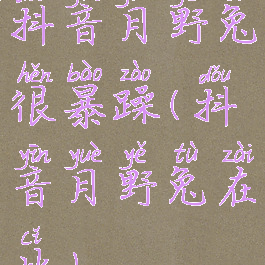 抖音月野兔
hěn bào zào dǒu
很暴躁(抖
yīn yuè yě tù zài
音月野兔在
cǐ